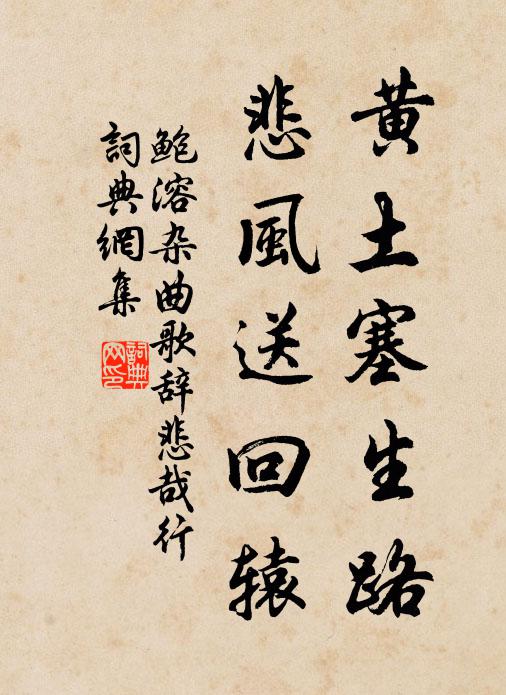 黄土塞生路
悲風送回辕
鲍溶杂曲歌辞悲哉行
詞典網集
詞典网印